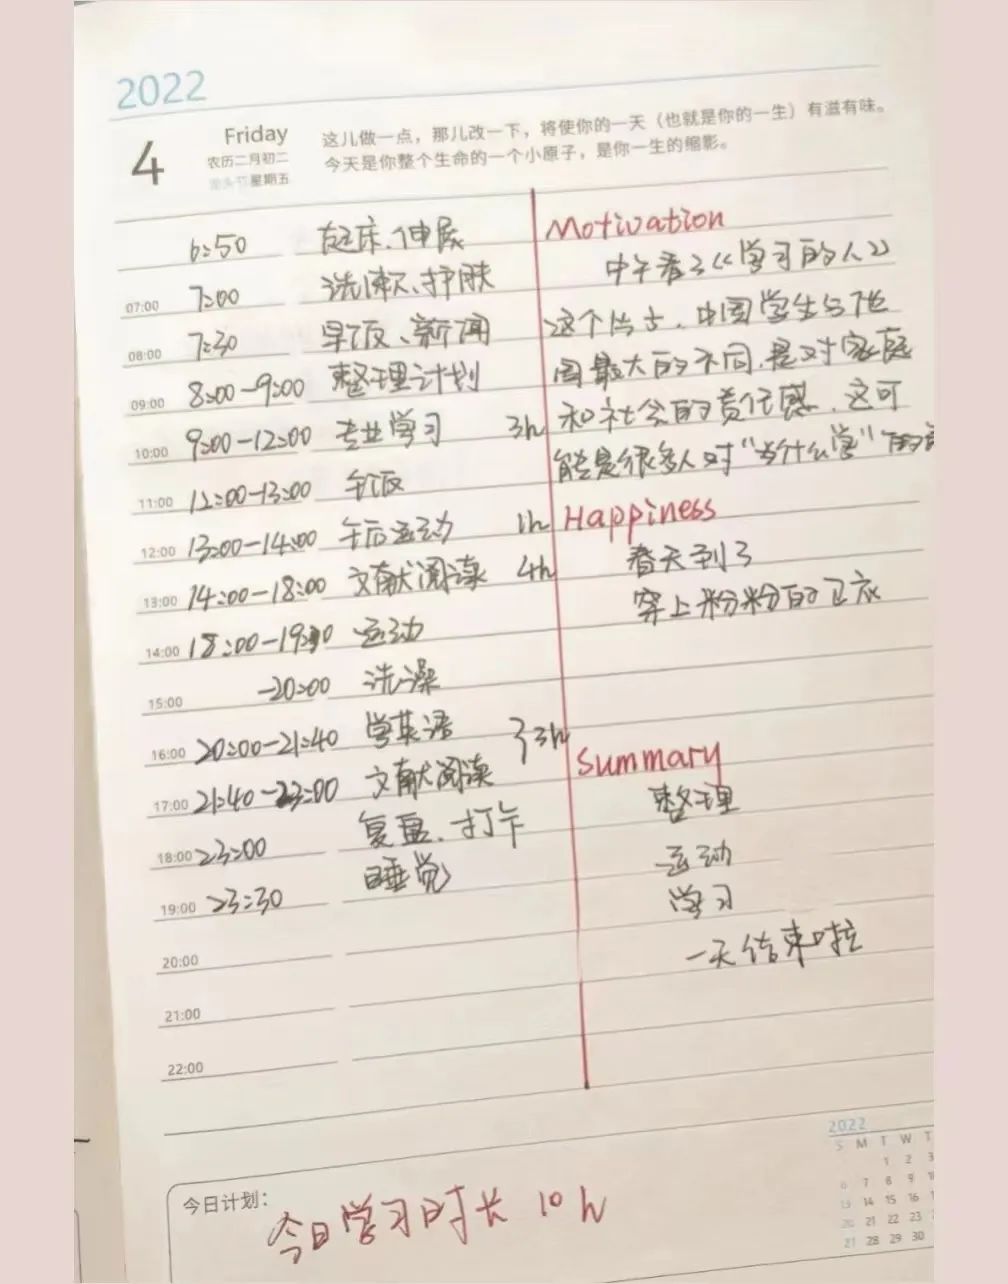 2022
4
Friday
农历二月初二
龙头节 星期五
这儿做一点，那儿改一下，将使你的一天（也就是你的一生）有滋有味。
今天是你整个生命的一个小原子，是你一生的缩影。
6:50 起床、伸展
07:00 7:00 洗漱、护肤
08:00 7:30 早饭、新闻
09:00 8:00-9:00 整理计划
10:00 9:00-12:00 专业学习 3h
11:00 12:00-13:00 午饭
12:00 13:00-14:00 午后运动 1h
13:00 14:00-18:00 文献阅读 4h
14:00 18:00-19:30 运动
15:00 -20:00 洗澡
16:00 20:00-21:40 学英语
} 3h
17:00 21:40-23:00 文献阅读
18:00 23:00 复盘、打卡
19:00 23:30 睡觉
20:00
21:00
22:00
Motivation
中午看了《学习的人》
这个片子，中国学生与他
国最大的不同，是对家庭
和社会的责任感，这可
能是很多人对“为什么学”的
Happiness
春天到了
穿上粉粉的卫衣
Summary
整理
运动
学习
一天结束啦
今日计划：
今日学习时长 10h
2022
S M T W T
1 2 3
6 7 8 9
13 14 15 16
20 21 22 23
27 28 29 30